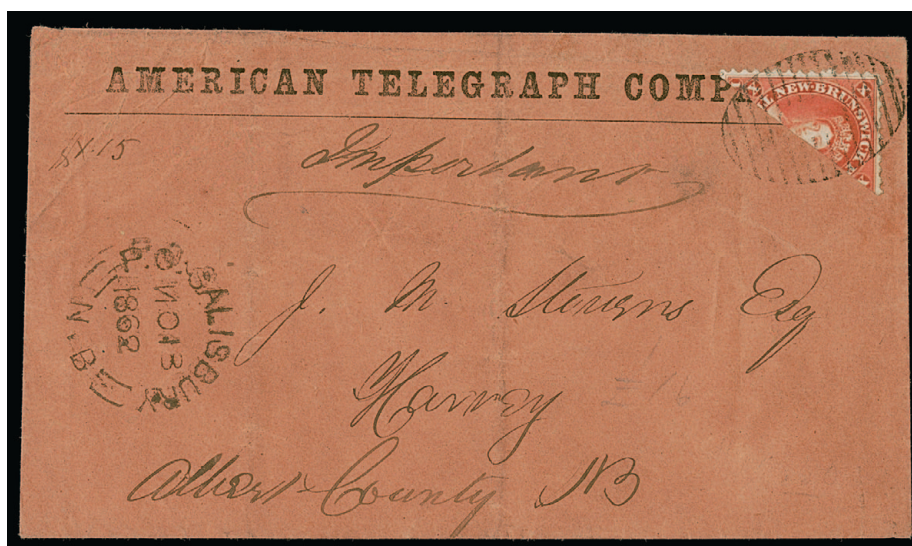 AMERICAN TELEGRAPH COMPA
X X
NEW-BRUNSWICK
Important
P.O. SALISBURY
NO 13
1862
N.B.
J. M. Stevens Esq
Harvey
Albert County NB